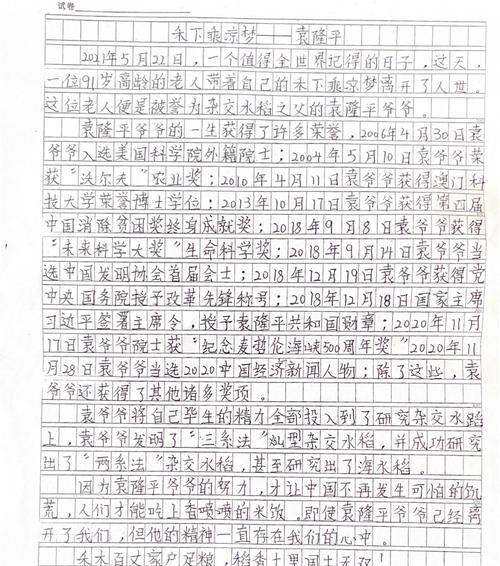 试卷
禾下乘凉梦——袁隆平
2021年5月22日，一个值得全世界记得的日子，这天，
一位91岁高龄的老人带着自己的禾下乘凉梦离开了人世。
这位老人便是被誉为杂交水稻之父的袁隆平爷爷。
袁隆平爷爷的一生获得了许多荣誉，2006年4月30日袁
爷爷入选美国科学院外籍院士；2004年5月10日袁爷爷荣
获“沃尔夫”农业奖；2010年4月11日袁爷爷获得澳门科
技大学荣誉博士学位；2013年10月17日袁爷爷获得第四届
中国消除贫困奖终身成就奖；2018年9月8日袁爷爷获得
“未来科学大奖”生命科学奖；2018年9月14日袁爷爷当
选中国发明协会首届会士；2018年12月19日袁爷爷获得党
中央国务院授予改革先锋称号；2018年12月18日国家主席
习近平签署主席令，授予袁隆平共和国勋章；2020年11月
17日袁爷爷院士获“纪念麦哲伦海峡500周年奖”2020年11
月28日袁爷爷当选2020中国经济新闻人物；除了这些，袁
爷爷还获得了其他诸多奖项。
袁爷爷将自己毕生的精力全部投入到了研究杂交水稻
上，袁爷爷发明了“三系法”籼型杂交水稻，并成功研究
出了“两系法”杂交水稻，甚至研究出了海水稻。
因为袁隆平爷爷的努力，才让中国不再发生可怕的饥
荒，人们才能吃上香喷喷的米饭。即使袁隆平爷爷已经离
开了我们，但他的精神一直存在我们的心中。
禾木百丈家户足粮，稻香十里国士无双！